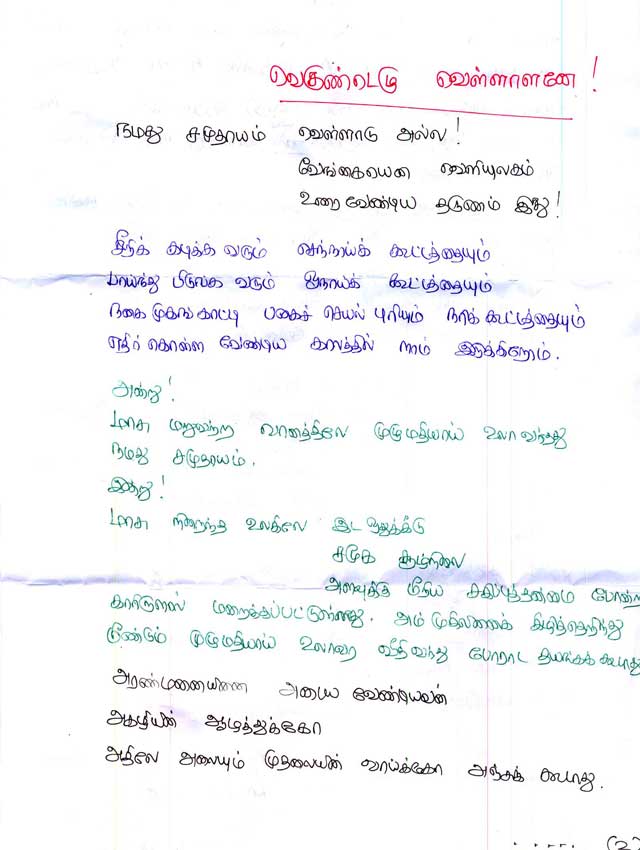 வெகுண்டெழு வெள்ளாளனே!
நமது சமுதாயம் வெள்ளாடு அல்ல!
வேங்கையென வெளியுலகம்
உறை வேண்டிய தருணம் இது!
சீறிக் கடிக்க வரும் செந்நாய்க் கூட்டத்தையும்
பாய்ந்து பிடுங்க வரும் ஓநாய்க் கூட்டத்தையும்
நகை முகங் காட்டி பகைச் செயல் புரியும் நரிக் கூட்டத்தையும்
எதிர் கொள்ள வேண்டிய களத்தில் நாம் இருக்கிறோம்.
அன்று!
மாசு மறுவற்ற வானத்திலே முழுமதியாய் உலா வந்தது
நமது சமுதாயம்.
இன்று!
மாசு நிறைந்த உலகிலே இட ஒதுக்கீடு
சமுக சூழ்நிலை
அளவுக்கு மீறிய சகிப்புத்தன்மை போன்ற
காரிருளால் மறைக்கப்பட்டுள்ளது. அம் முகிலினைக் கிழித்தெறிந்து
மீண்டும் முழுமதியாய் உலாவர வீதி வந்து போராட தயங்கக் கூடாது
அரண்மனையினை அடைய வேண்டியவன்
அகழியின் ஆழத்துக்கோ
அதிலே அலையும் முதலையின் வாய்க்கோ அஞ்சக் கூடாது.
..... (2)